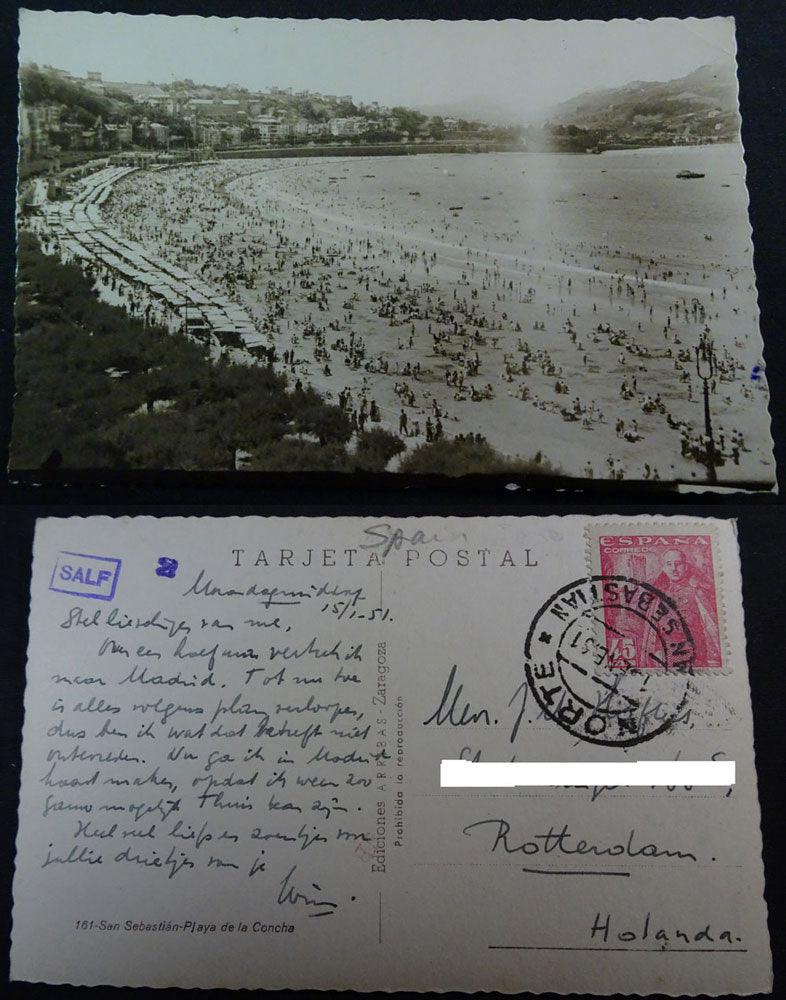 SALF
a
TARJETA POSTAL
Spain
Maandagmiddag
15/1-51.
Stel lieverdjes van me,
Over een half uur vertrek ik
naar Madrid. Tot nu toe
is alles volgens plan verlopen,
dus ben ik wat dat betreft niet
ontevreden. Nu ga ik in Madrid
haast maken, opdat ik weer zoo
gauw mogelijk thuis kan zijn.
Heel veel liefs en zoentjes voor
jullie drietjes van je
Wim.
161-San Sebastián-Playa de la Concha
Ediciones ARRIBAS-Zaragoza
Prohibida la reproducción
ESPAÑA
CORREOS
75
SAN SEBASTIAN
NORTE
Mevr. J.
Rotterdam.
Holanda.